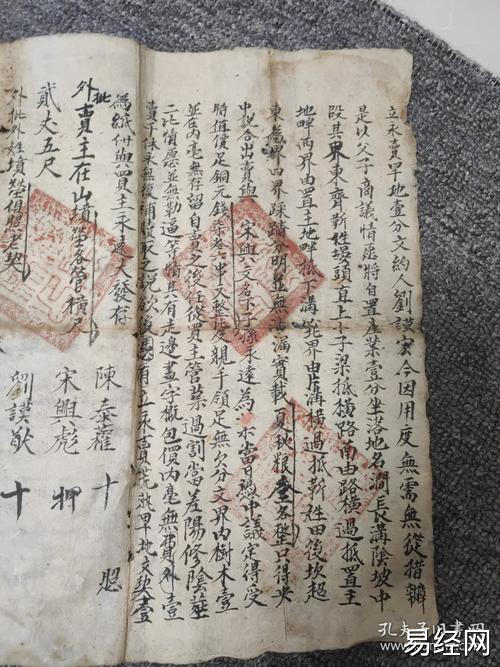 立永賣旱地壹分文約人劉謨宏今因用度無需無從措辦
是以父子商議情愿將自置產業壹分坐落地名澗長溝陰坡中
段其界東齊靳姓墳頭直上小子梁抵橫路南由路橫過抵置主
地畔西界由置主地畔抵下溝北界由溝橫過抵靳姓田後坎起
東為界四界踩踏分明並無遺漏實載夏秋粮各整只得央
中說合出賣與宋興文名下子孫永遠為業當日憑中議定得受
時值價足銅元錢柒者六中又整花交親手領足無欠分文界內樹木壹
並在內毫無存留自賣之後任從買主管業過割當差陽修陰葬
二比情愿並無勒逼等情其有走邊畫字椒包價內毫無賣外壹
賣千休永無後補贖取之說欲後有立永賣荒熟旱地文契壹
為紙付與買主永遠大發存
外批賣主在山墳塋各管橫尺
貳丈五尺
外批外姓墳塋俱照老契
陳泰羅十
宋興彪押
劉謨猷十
孔夫子旧书网
易经网